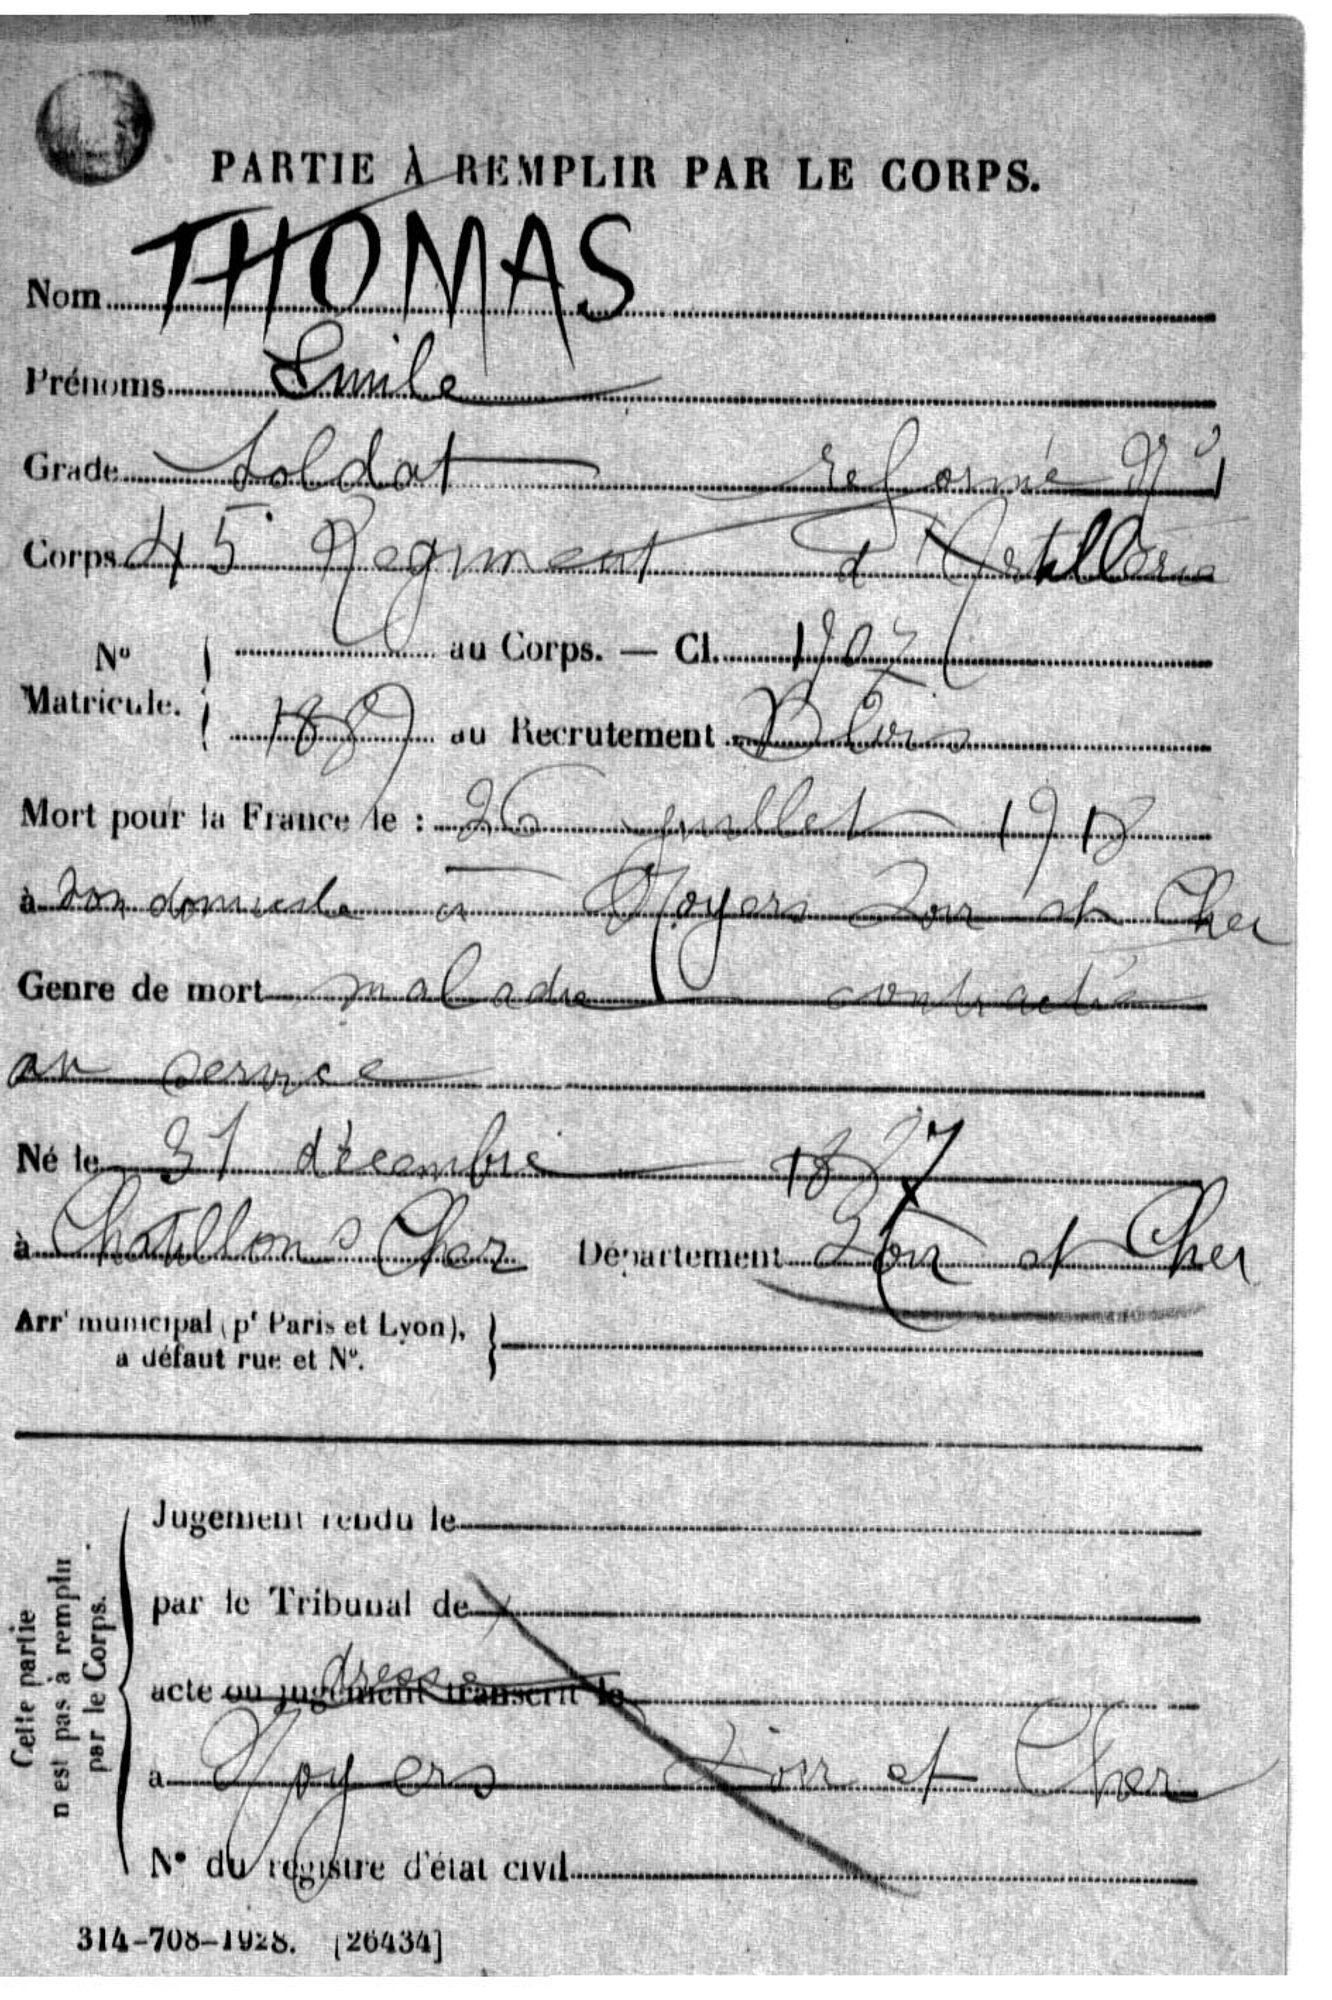 PARTIE À REMPLIR PAR LE CORPS.
Nom THOMAS
Prénoms Emile
Grade Soldat reformé Nº 1
Corps 45 Regiment d'Artillerie
Nº Matricule. au Corps. — Cl. 1907
1889 au Recrutement Blois
Mort pour la France le : 26 juillet 1918
à son domicile à Noyers Loir et Cher
Genre de mort maladie contractée
en service
Né le 31 décembre 1887
à Chatillon s Cher Département Loir et Cher
Arrt municipal (pr Paris et Lyon),
à défaut rue et Nº.
Cette partie
n'est pas à remplir
par le Corps.
Jugement rendu le
par le Tribunal de
dressé
acte ou jugement transcrit le
à Noyers Loir et Cher
Nº du registre d'état civil
314-708-1928. [26434]